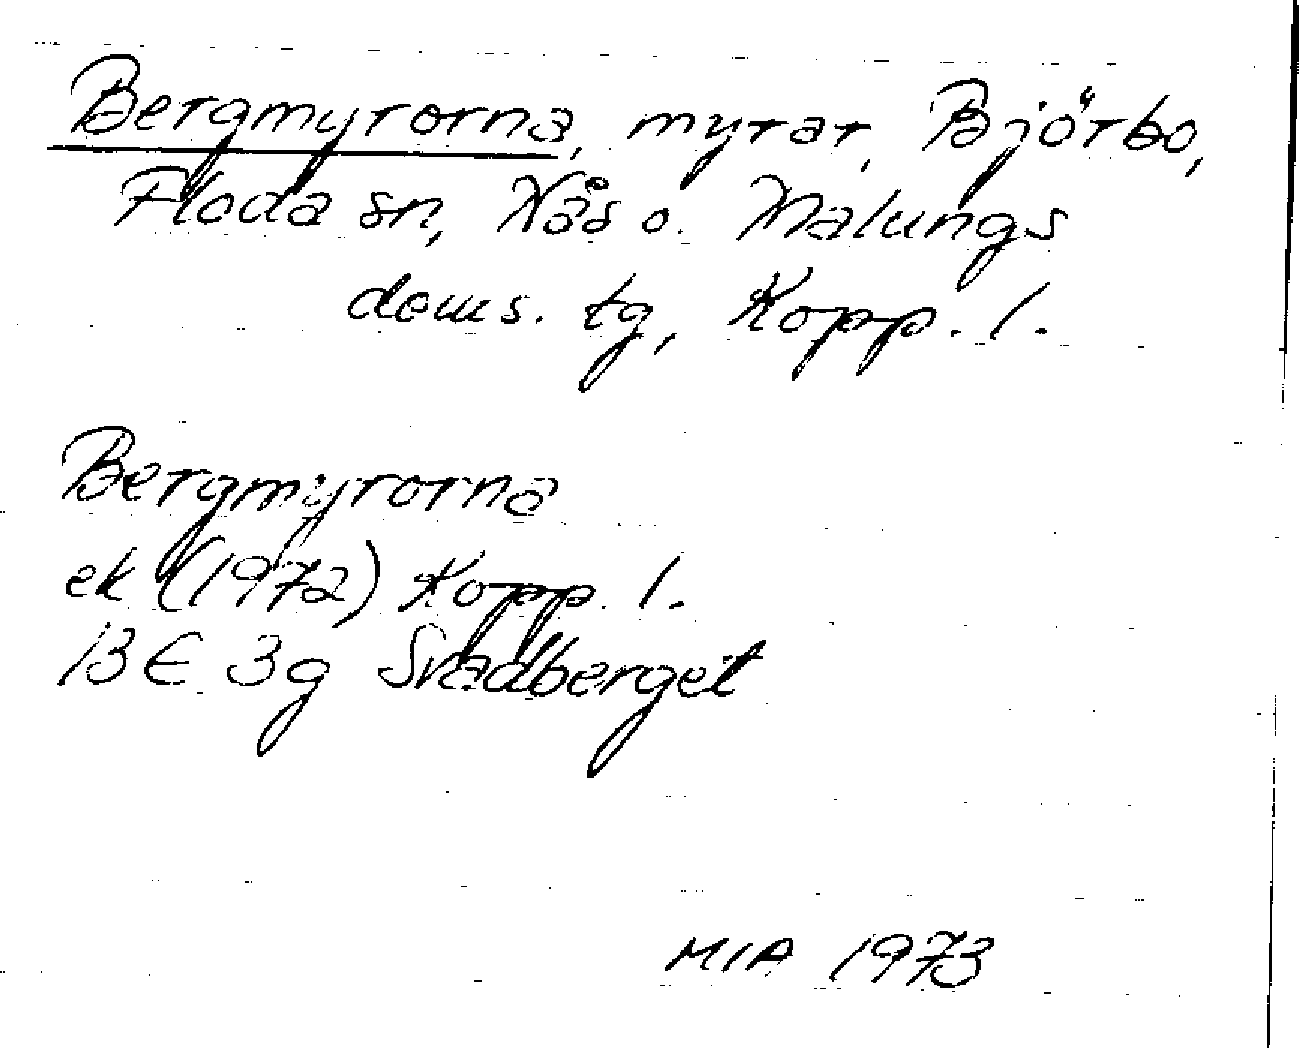 Bergmyrorna, myrar, Björbo,
Floda sn, Nås o. Malungs
doms. tg, Kopp. l.
Bergmyrorna
ek (1972) Kopp. l.
13E 3g Svadberget
MIA 1973